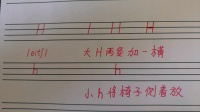 H I H H
/eitʃ/ 大H两竖加一横
h h
小h将椅子侧着放